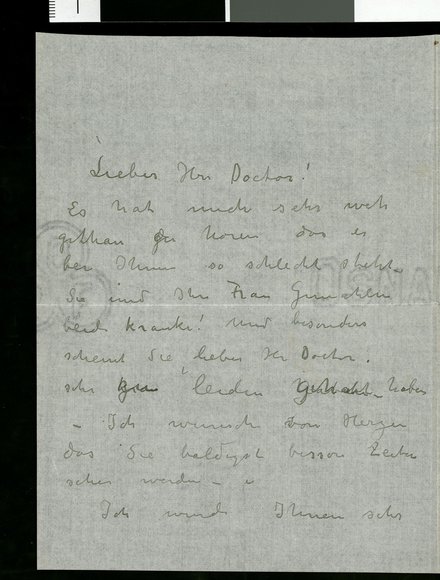 Lieber Hr Doctor!
Es hat mich sehr weh
gethan zu hören das es
bei Ihnen so schlecht steht_
Sie und Ihr Frau Gemahlin
beide kranke! und besonders
scheint Sie, lieber Hr Doctor.
sehr leiden gehabt haben
_ Ich wunsch von Herzen
das Sie baldigst besser Zeiten
sehen werden _
Ich wurde Ihnen sehr